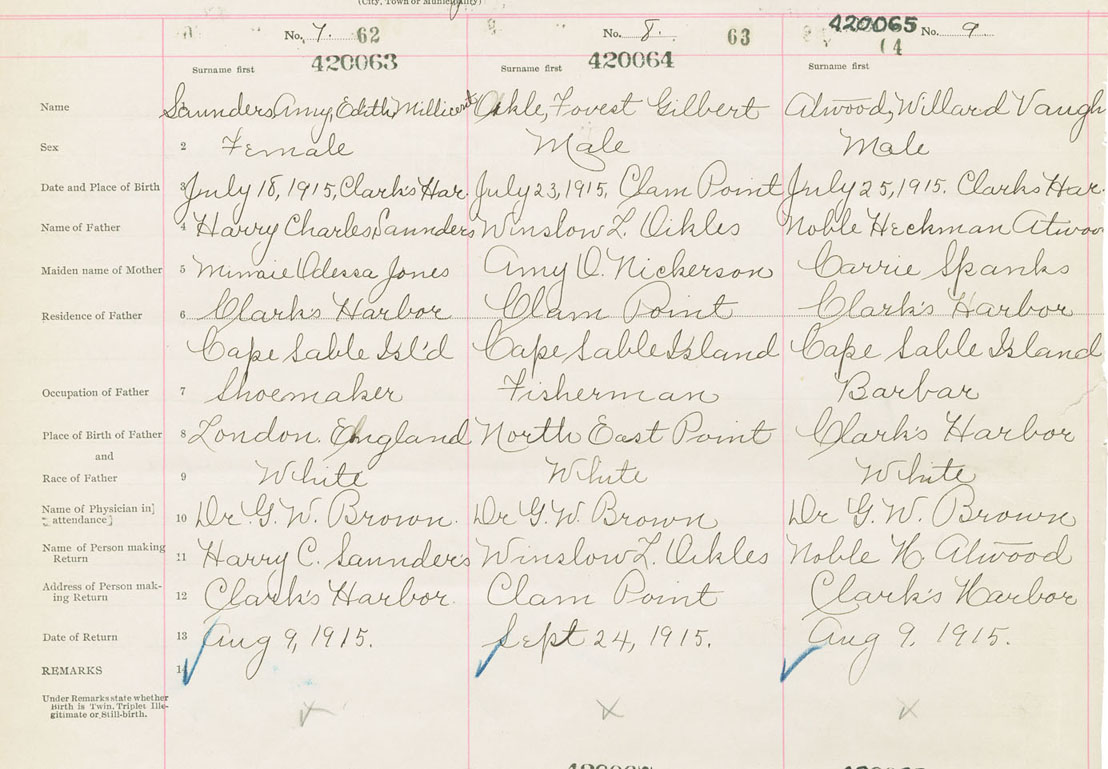 (City, Town or Municipality)
No. 7. 62 No. 8. 63 420065 No. 9
420063 420064 64
Surname first Surname first Surname first
Name Saunders, Amy, Edith, Millicent Oikle, Forest Gilbert Atwood, Willard Vaugh
Sex 2 Female Male Male
Date and Place of Birth 3 July 18, 1915, Clark's Har. July 23, 1915, Clam Point July 25, 1915. Clark's Har.
Name of Father 4 Harry Charles Saunders Winslow L. Oikles Noble Heckman Atwoo
Maiden name of Mother 5 Minnie Odessa Jones Amy O. Nickerson Carrie Spanks
Residence of Father 6 Clark's Harbor Clam Point Clark's Harbor
Cape Sable Isl'd Cape Sable Island Cape Sable Island
Occupation of Father 7 Shoemaker Fisherman Barbar
Place of Birth of Father 8 London. England North East Point Clark's Harbor
and
Race of Father 9 White White White
Name of Physician in] attendance] 10 Dr G. W. Brown. Dr G. W. Brown Dr G. W. Brown
Name of Person making Return 11 Harry C. Saunders Winslow L. Oikles Noble H. Atwood
Address of Person making Return 12 Clark's Harbor. Clam Point Clark's Harbor
Date of Return 13 Aug 9, 1915. Sept 24, 1915. Aug 9. 1915.
REMARKS 14
Under Remarks state whether
Birth is Twin, Triplet Ille-
gitimate or Still-birth.